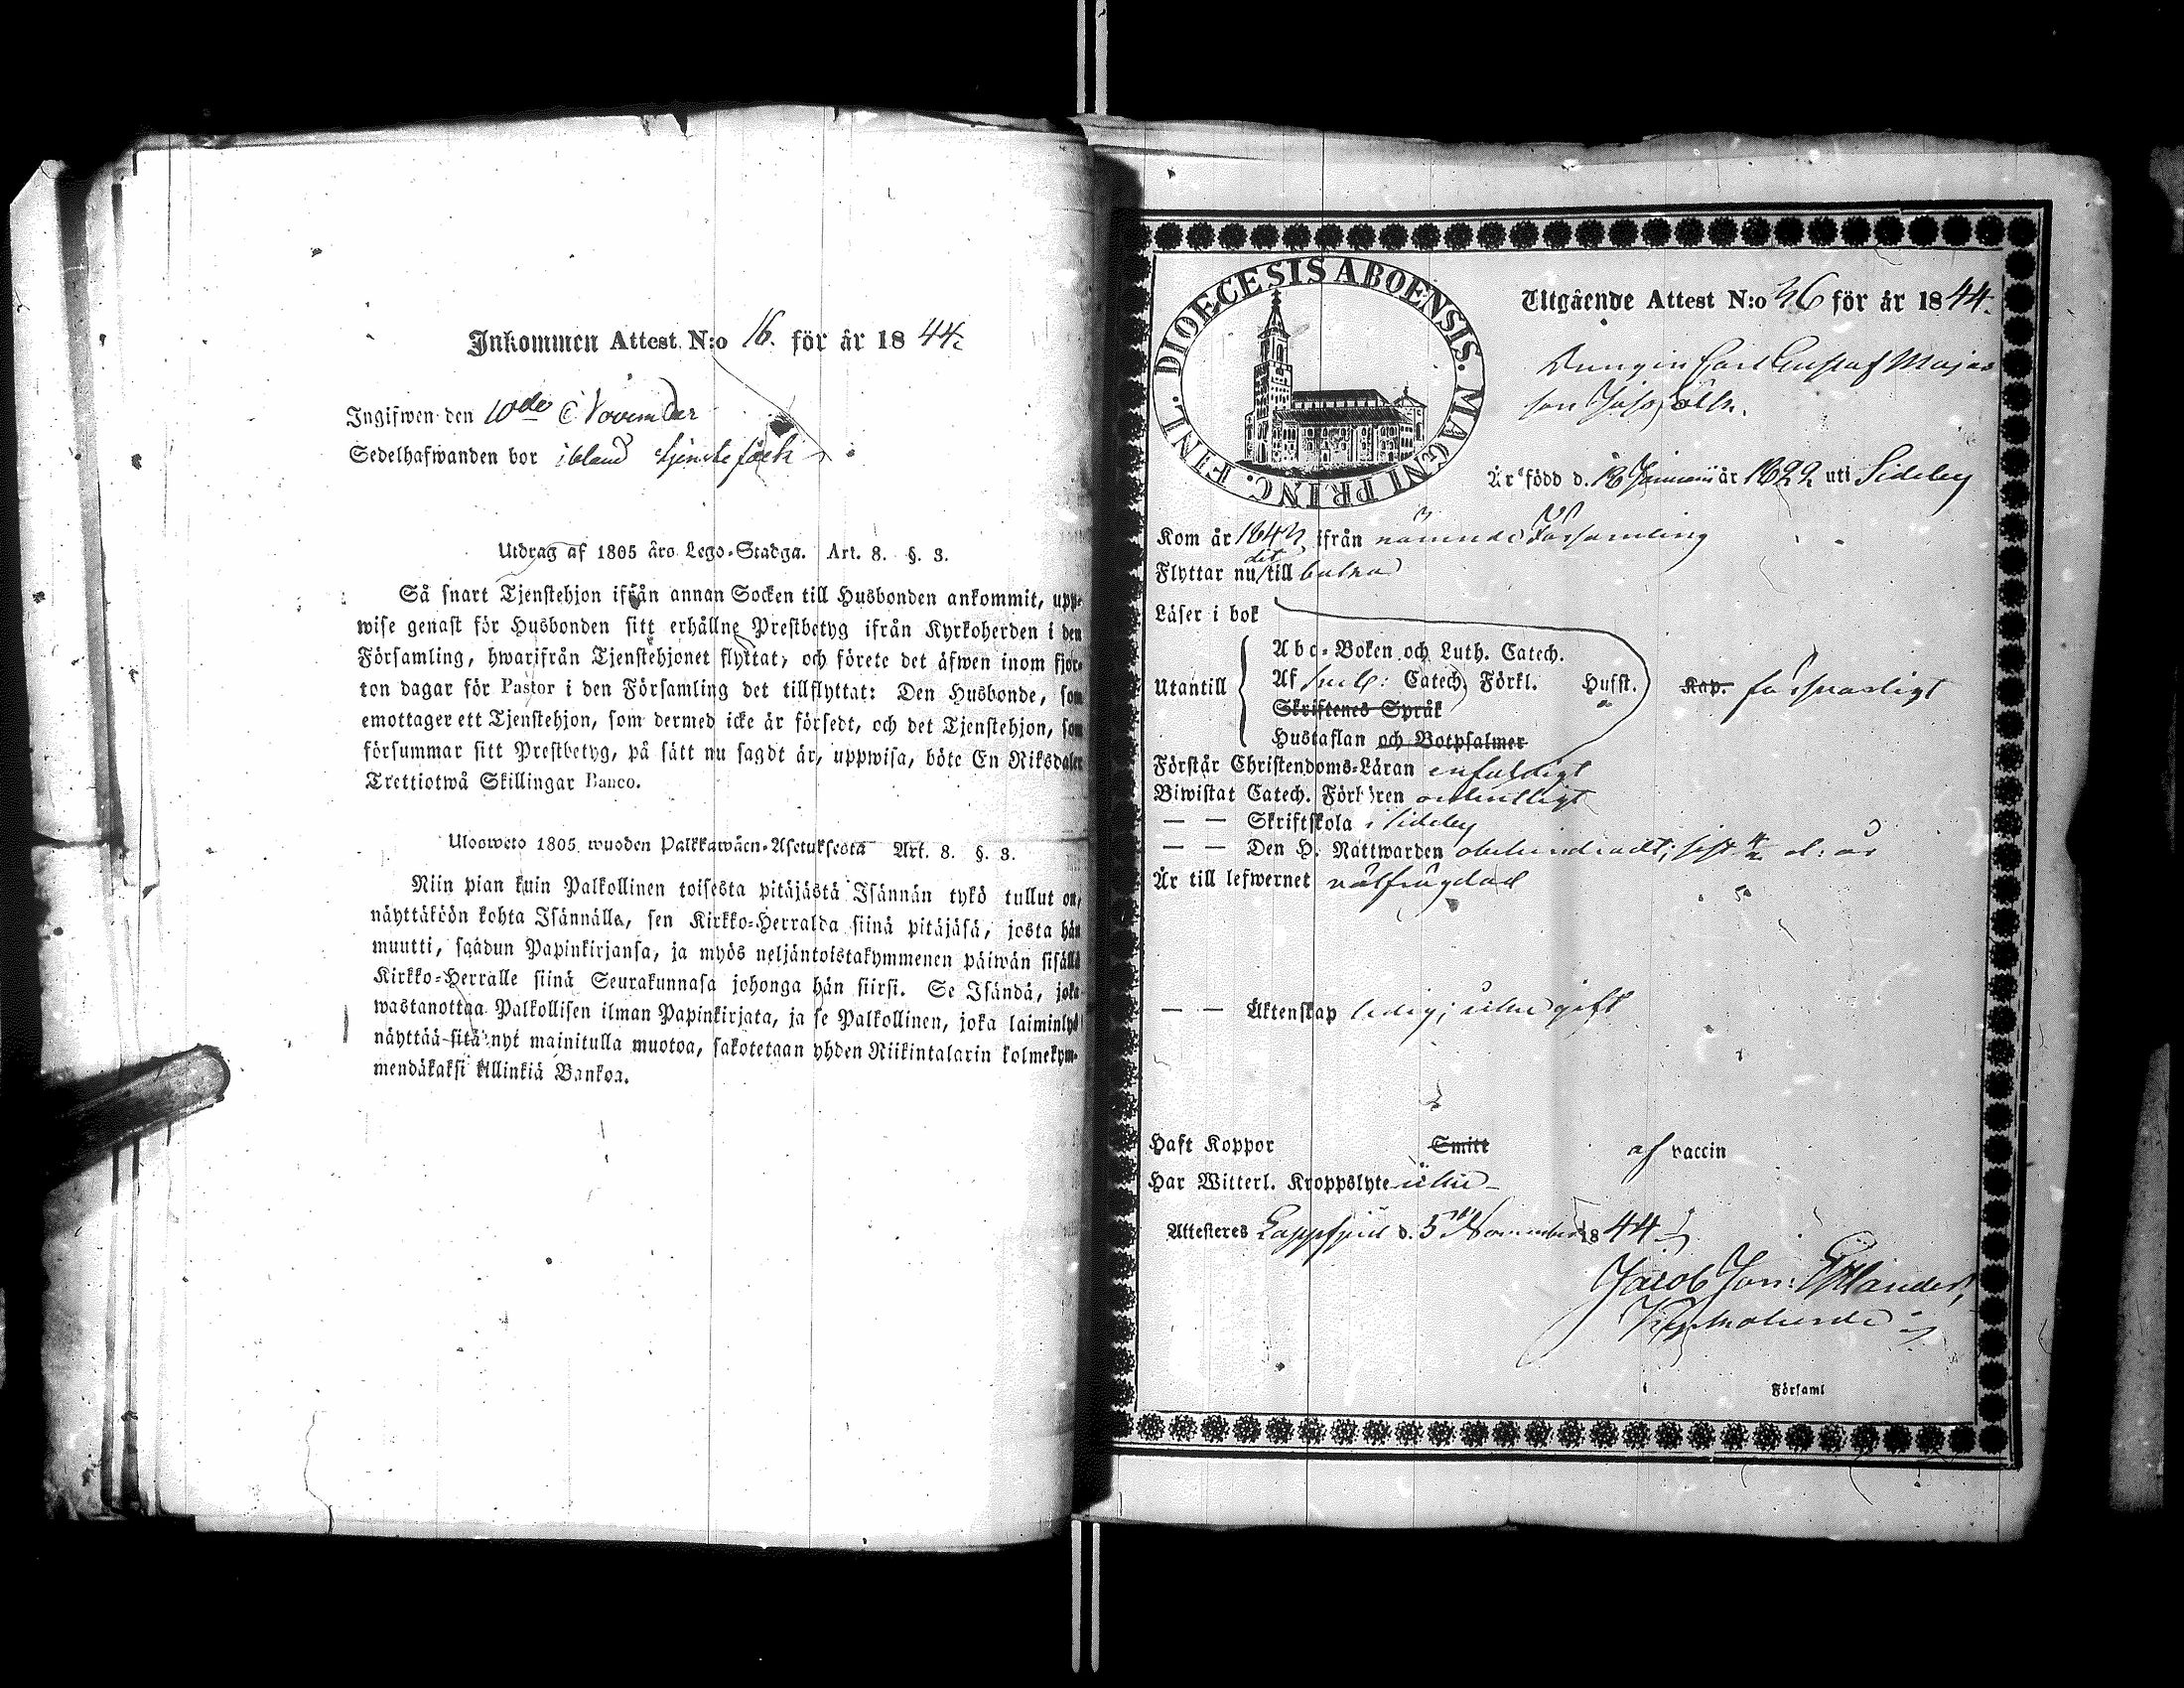 Inkommen Attest N:o 16. för år 1844.
Ingifwen den 10de November
Sedelhafwanden bor ibland tjenstefolk
Utdrag af 1805 års Lego-Stadga. Art. 8. §. 3.
Så snart Tjenstehjon ifrån annan Socken till Husbonden ankommit, upp-
wise genast för Husbonden sitt erhållne Prestbetyg ifrån Kyrkoherden i den
Församling, hwarifrån Tjenstehjonet flyttat, och förete det äfwen inom fjor-
ton dagar för Pastor i den Församling det tillflyttat: Den Husbonde, som
emottager ett Tjenstehjon, som dermed icke är försedt, och det Tjenstehjon, som
försummar sitt Prestbetyg, på sätt nu sagdt är, uppwisa, böte En Riksdaler
Trettiotwå Skillingar Banco.
Ulosweto 1805 wuoden Palkkawäen-Asetuksesta Art. 8. §. 3.
Niin pian kuin Palkollinen toisesta pitäjästä Isännän tykö tullut on,
näyttäköön kohta Isännälle, sen Kirkko-Herralda siinä pitäjäsä, josta hän
muutti, saadun Papinkirjansa, ja myös neljäntoistakymmenen päiwän sisällä
Kirkko-Herralle siinä Seurakunnasa johonga hän siirsi. Se Isändä, joka
wastanottaa Palkollisen ilman Papinkirjata, ja se Palkollinen, joka laiminlyö
näyttää sitä nyt mainitulla muotoa, sakotetaan yhden Riikintalarin kolmekym-
mendäkaksi killinkiä Bankoa.
DIOECESIS ABOENSIS. MAGNI PRINC. FINL.
Utgående Attest N:o 26 för år 1844.
Drängen Carl Gustaf Majas
son
Är född d. 18 Januari år 1822 uti Sideby
Kom år 1842 ifrån nämnde Församling
Flyttar nu det till
Läser i bok
Utantill
Abc-Boken och Luth. Catech.
Af Catech. Förkl. Husst. Kap. försvarligt
Skriftenes Språk
Hustaflan och Botpsalmer
Förstår Christendoms-Läran enfaldigt
Biwistat Catech. Förhören ordentligt
— — Skriftskola i Sideby
— — Den H. Nattwarden obehindradt; sist d: år
Är till lefwernet välfrägdad
— — Äktenskap ledig; icke gift
Haft Koppor Smitt af vaccin
Har Witterl. Kroppslyte icke
Attesteres Lappfjerd d. 5 November 1844
Jacob Jon: Estlander,
Kyrkoherde
Församl